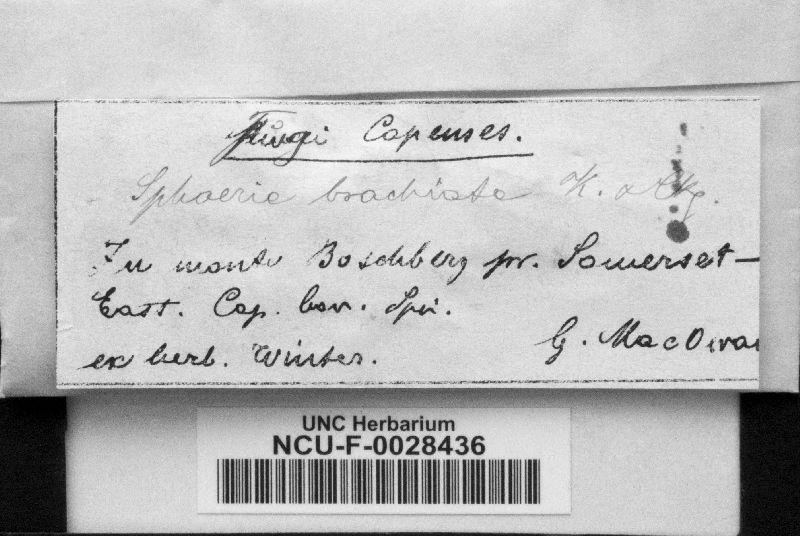 Fungi Capenses.
Sphaeria brachiata K. &
In monte Boschberg pr. Somerset-
East. Cap. bon. Spei.
G. MacOwan
ex herb. Winter.
UNC Herbarium
NCU-F-0028436